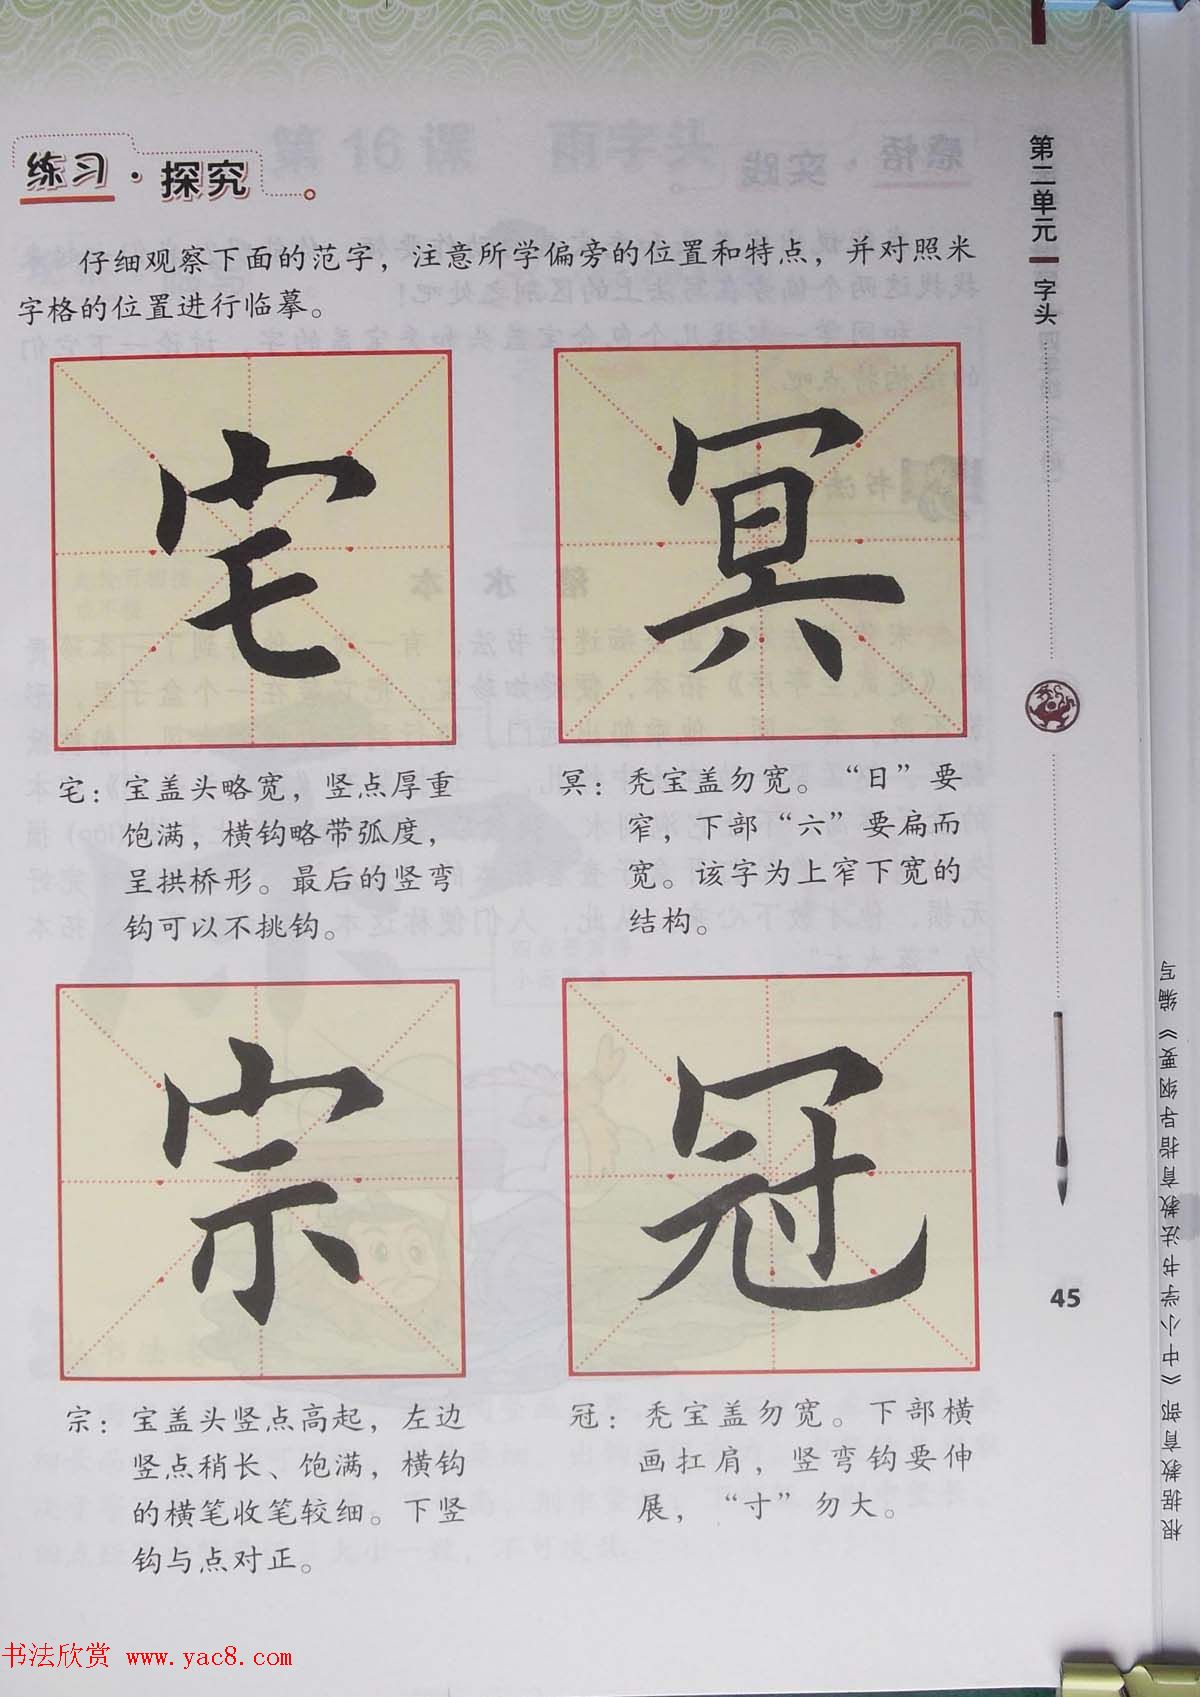 练习·探究
仔细观察下面的范字，注意所学偏旁的位置和特点，并对照米
字格的位置进行临摹。
宅
冥
宅：宝盖头略宽，竖点厚重
饱满，横钩略带弧度，
呈拱桥形。最后的竖弯
钩可以不挑钩。
冥：秃宝盖勿宽。“日”要
窄，下部“六”要扁而
宽。该字为上窄下宽的
结构。
宗
冠
宗：宝盖头竖点高起，左边
竖点稍长、饱满，横钩
的横笔收笔较细。下竖
钩与点对正。
冠：秃宝盖勿宽。下部横
画扛肩，竖弯钩要伸
展，“寸”勿大。
第二单元 字头
45
根据教育部《中小学书法教育指导纲要》编写
书法欣赏 www.yac8.com